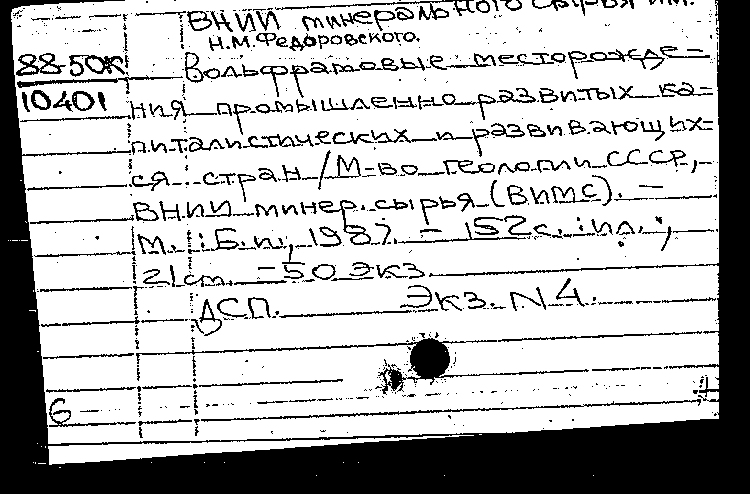 ВНИИ минерального сырья им.
Н.М.Федоровского.
88-50К
10401
Вольфрамовые месторожде-
ния промышленно развитых ка-
питалистических и развивающих-
ся стран / М-во геологии СССР,
ВНИИ минер. сырья (ВИМС). —
М. : Б.и., 1987. - 152 с. : ил. ;
21 см. - 50 экз.
ДСП. Экз. N 4.
6